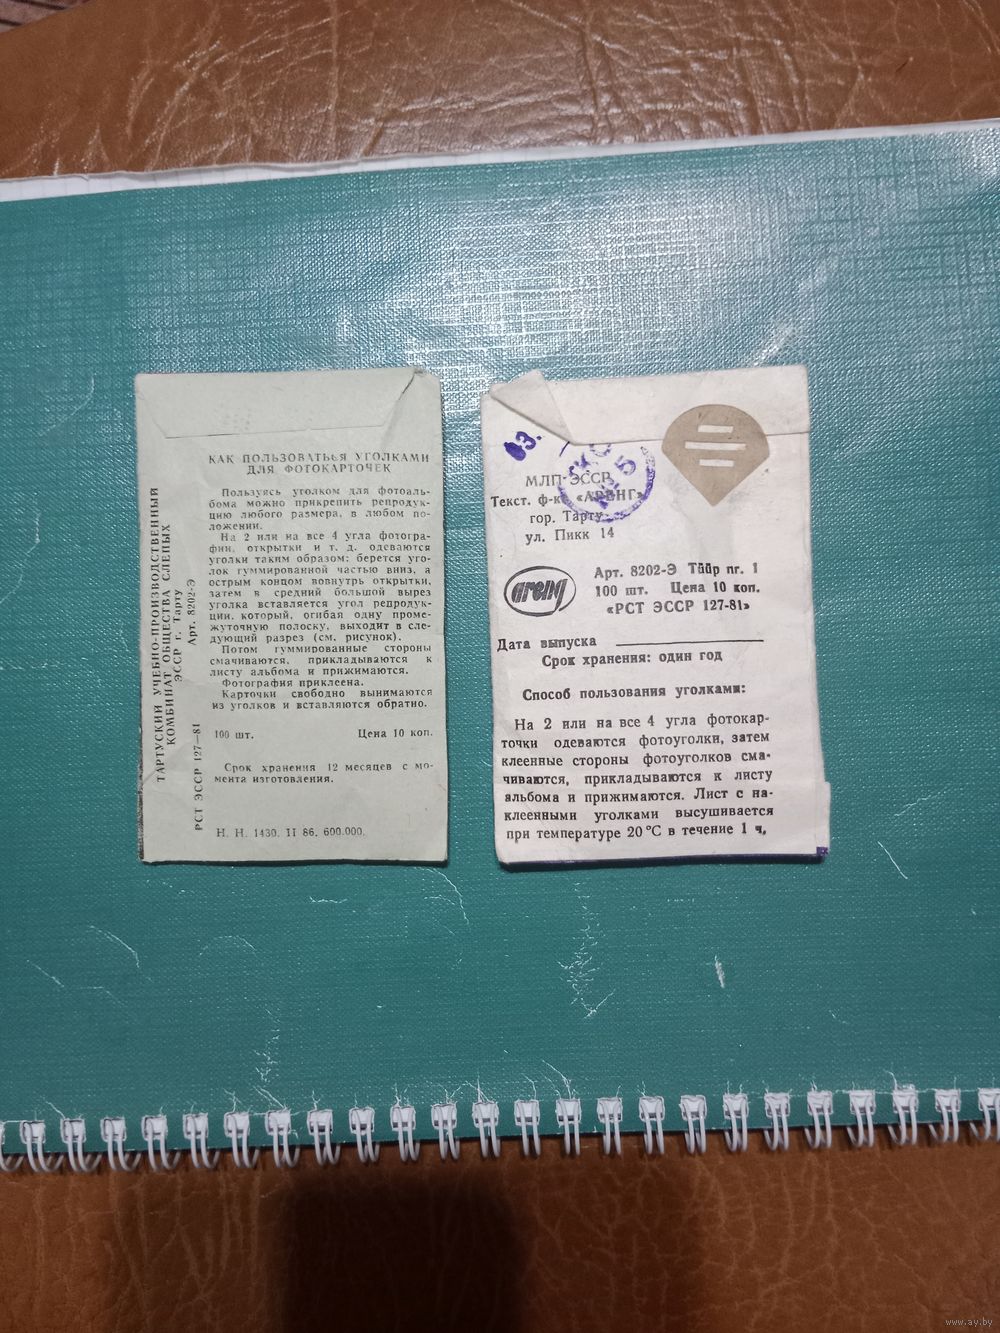 КАК ПОЛЬЗОВАТЬЬЯ УГОЛКАМИ
ДЛЯ ФОТОКАРТОЧЕК
Пользуясь уголком для фотоаль-
бома можно прикрепить репродук-
цию любого размера, в любом по-
ложении.
На 2 или на все 4 угла фотогра-
фии, открытки и т. д. одеваются
уголки таким образом: берется уго-
лок гуммированной частью вниз, а
острым концом вовнутрь открытки,
затем в средний большой вырез
уголка вставляется угол репродук-
ции, который, огибая одну проме-
жуточную полоску, выходит в сле-
дующий разрез (см. рисунок).
Потом гуммированные стороны
смачиваются, прикладываются к
листу альбома и прижимаются.
Фотография приклеена.
Карточки свободно вынимаются
из уголков и вставляются обратно.
100 шт. Цена 10 коп.
Срок хранения 12 месяцев с мо-
мента изготовления.
Н. Н. 1430. II 86. 600.000.
ТАРТУСКИЙ УЧЕБНО-ПРОИЗВОДСТВЕННЫЙ
КОМБИНАТ ОБЩЕСТВА СЛЕПЫХ
ЭССР г. Тарту
РСТ ЭССР 127—81 Арт. 8202-Э
83.
МЛП ЭССР
Текст. ф-ка «АРЕНГ»
гор. Тарту
ул. Пикк 14
areng
Арт. 8202-Э Тüüр nr. 1
100 шт. Цена 10 коп.
«РСТ ЭССР 127-81»
Дата выпуска
Срок хранения: один год
Способ пользования уголками:
На 2 или на все 4 угла фотокар-
точки одеваются фотоуголки, затем
клеенные стороны фотоуголков сма-
чиваются, прикладываются к листу
альбома и прижимаются. Лист с на-
клеенными уголками высушивается
при температуре 20 °C в течение 1 ч.
www.ay.by